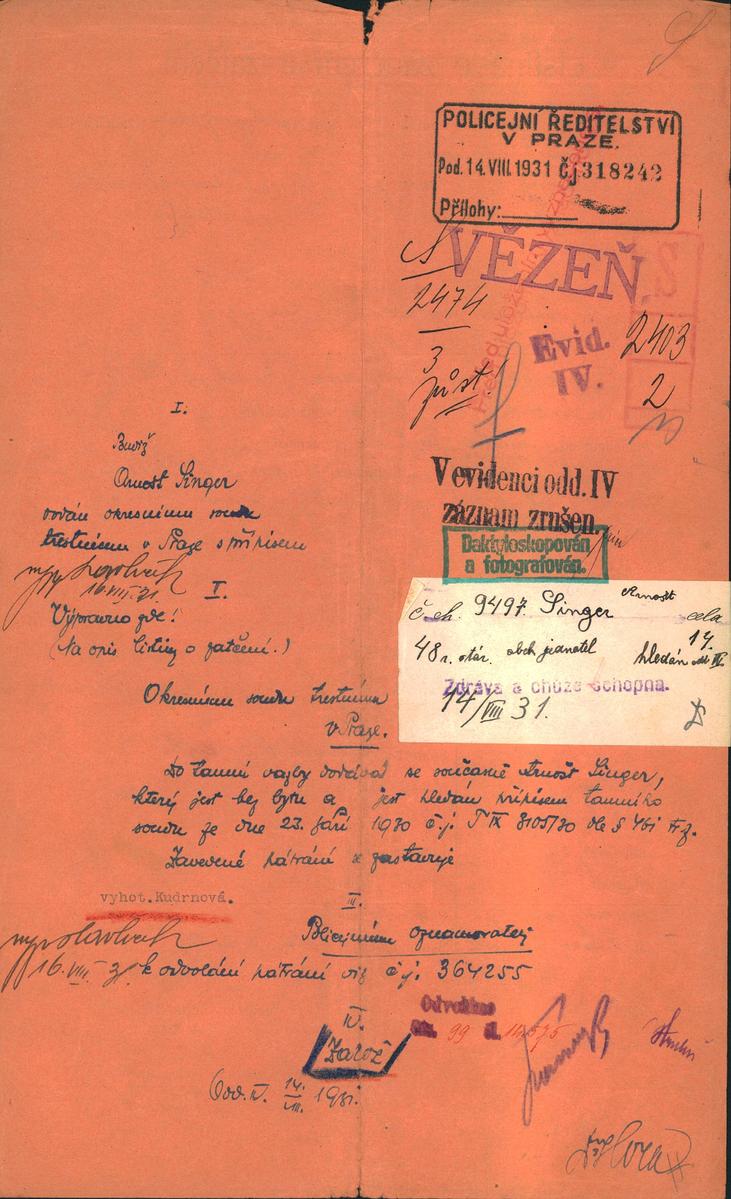 POLICEJNÍ ŘEDITELSTVÍ
V PRAZE.
Pod. 14. VIII. 1931 Čj 318242
Přílohy:
VĚZEŇ
S
2474
3
Evid.
IV.
2403
2
V evidenci odd. IV
záznam zrušen.
Daktyloskopován
a fotografován.
č. ch. 9497. Singer Arnošt cela
48 r. stár. obch jednatel hledán odd IV
14.
Zdráva a chůze schopna.
14/VIII 31.
I.
Arnošt Singer
dodán okresnímu soudu
trestnímu v Praze s přípisem
16.VIII.31.
I.
Vypraveno zde!
(Na opis listiny o zatčení.)
Okresnímu soudu trestnímu
v Praze.
Do tamní vazby dodává se současně Arnošt Singer,
který jest bez bytu a jest hledán přípisem tamního
soudu ze dne 23. září 1930 č.j. T IX 3105/30 dle § 461 tr.z.
Zavedené pátrání se zastavuje
vyhot.Kudrnová.
III.
Policejnímu oznamovateli
16.VIII.31 k odvolání pátrání viz č.j. 364255
Odvoláno
99
IV.
Založ
Odd. IV. 14./VIII. 1931.